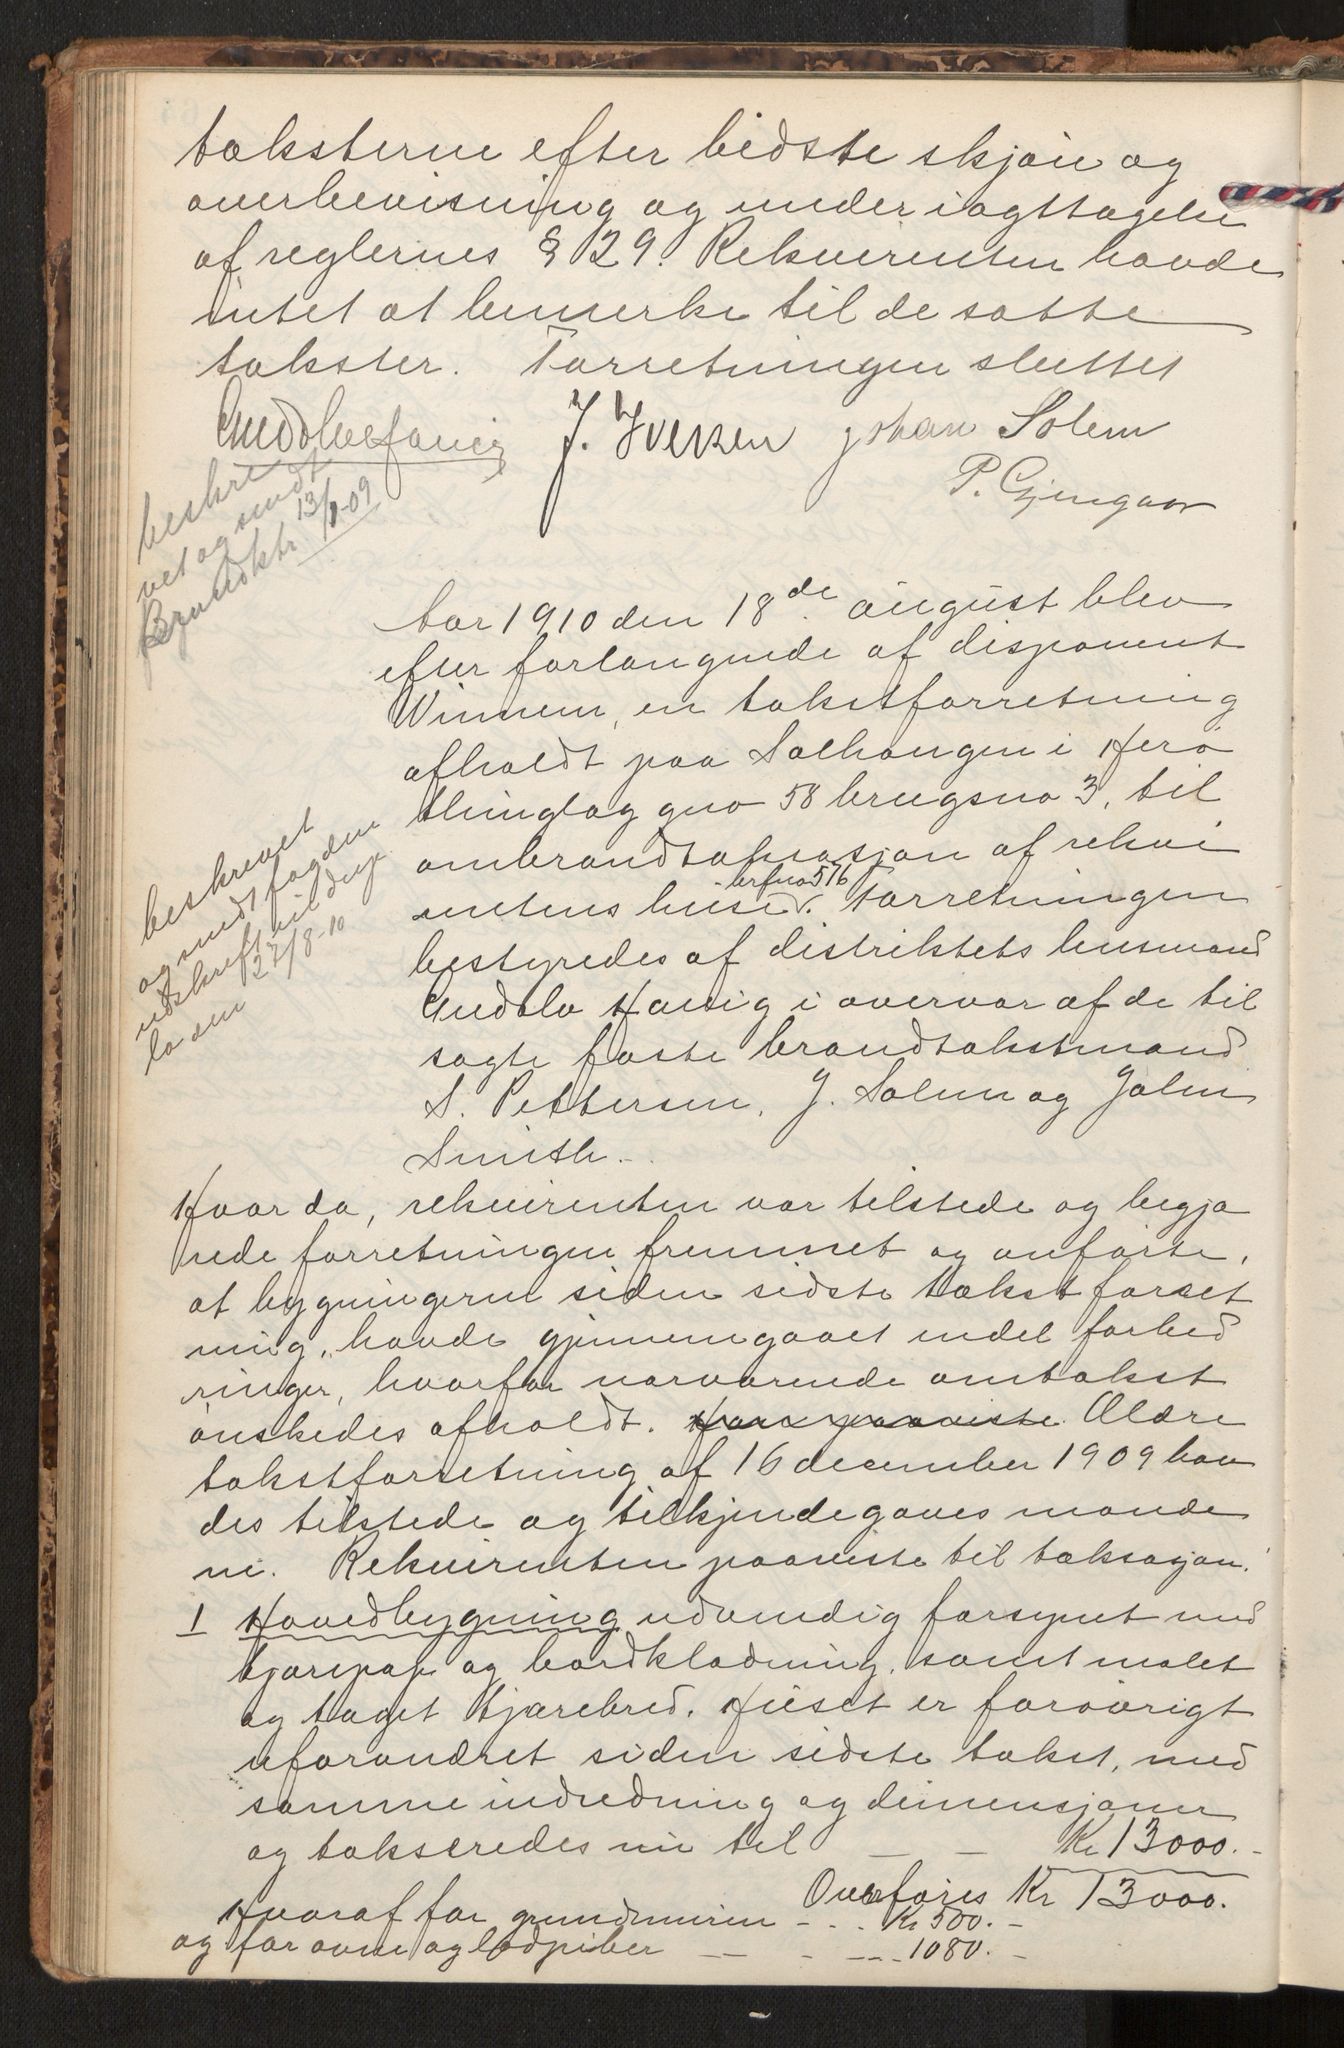 taksterne efter bedste skjøn og
overbevisning og under iagttagelse
af reglernes § 29. Rekvirenten havde
intet at bemerke til de satte
takster. Forretningen sluttet
J. Iversen Johan Solem
P. Gjengaar
beskre
vet og sendt
Brandktr 13/1-09
Aar 1910 den 18de august blev
efter forlangende af disponent
Winnem, en takstforretning
afholdt paa Solhaugen i Herø
thinglag gno 58 brugsno 3, til
ombrandtaksasjon af rekvi
rentens huse brfno 576. Forretningen
bestyredes af distriktets lensmand
Gudolv Havig i overvær af de til
sagte faste brandtakstmænd
S. Pettersen, J. Solem og John
Smith.
beskrevet
og sendt fogden
udskrift til
27/8-10
Hvor da, rekvirenten var tilstede og begjæ
rede forretningen fremmet og anførte,
at bygningerne siden sidste takstforret
ning, havde gjennemgaaet endel forbed
ringer, hvorfor nærværende omtakst
ønskedes afholdt. Ældre
takstforretning af 16 december 1909 hav
des tilstede og tilkjendegaves mænde
ne. Rekvirenten paaviste til taksasjon:
1 Hovedbygning udvendig forsynet med
tjærepap og bordklædning, samt malet
og taget tjærebred. Huset er forøvrigt
uforandret siden sidste takst, med
samme indredning og dimensjoner
og takseredes nu til — — Kr 13000.-
Overføres Kr 13000.
Hvoraf for grundmuren - . . Kr 500.-
og for ovne og ladpiber — - --- 1080.-